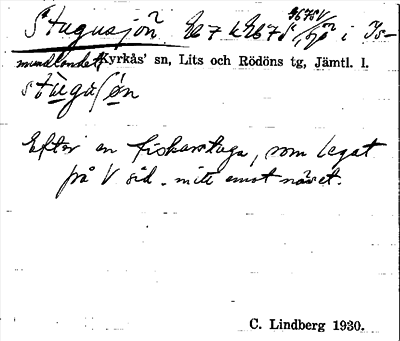 Stugusjön. Ek 7 k Ek 7 d, sjö i Is-
mundlandet Kyrkås' sn, Lits och Rödöns tg, Jämtl. l.
Efter en fiskarstuga, som legat
på V sid. mitt emot näset.
C. Lindberg 1930.